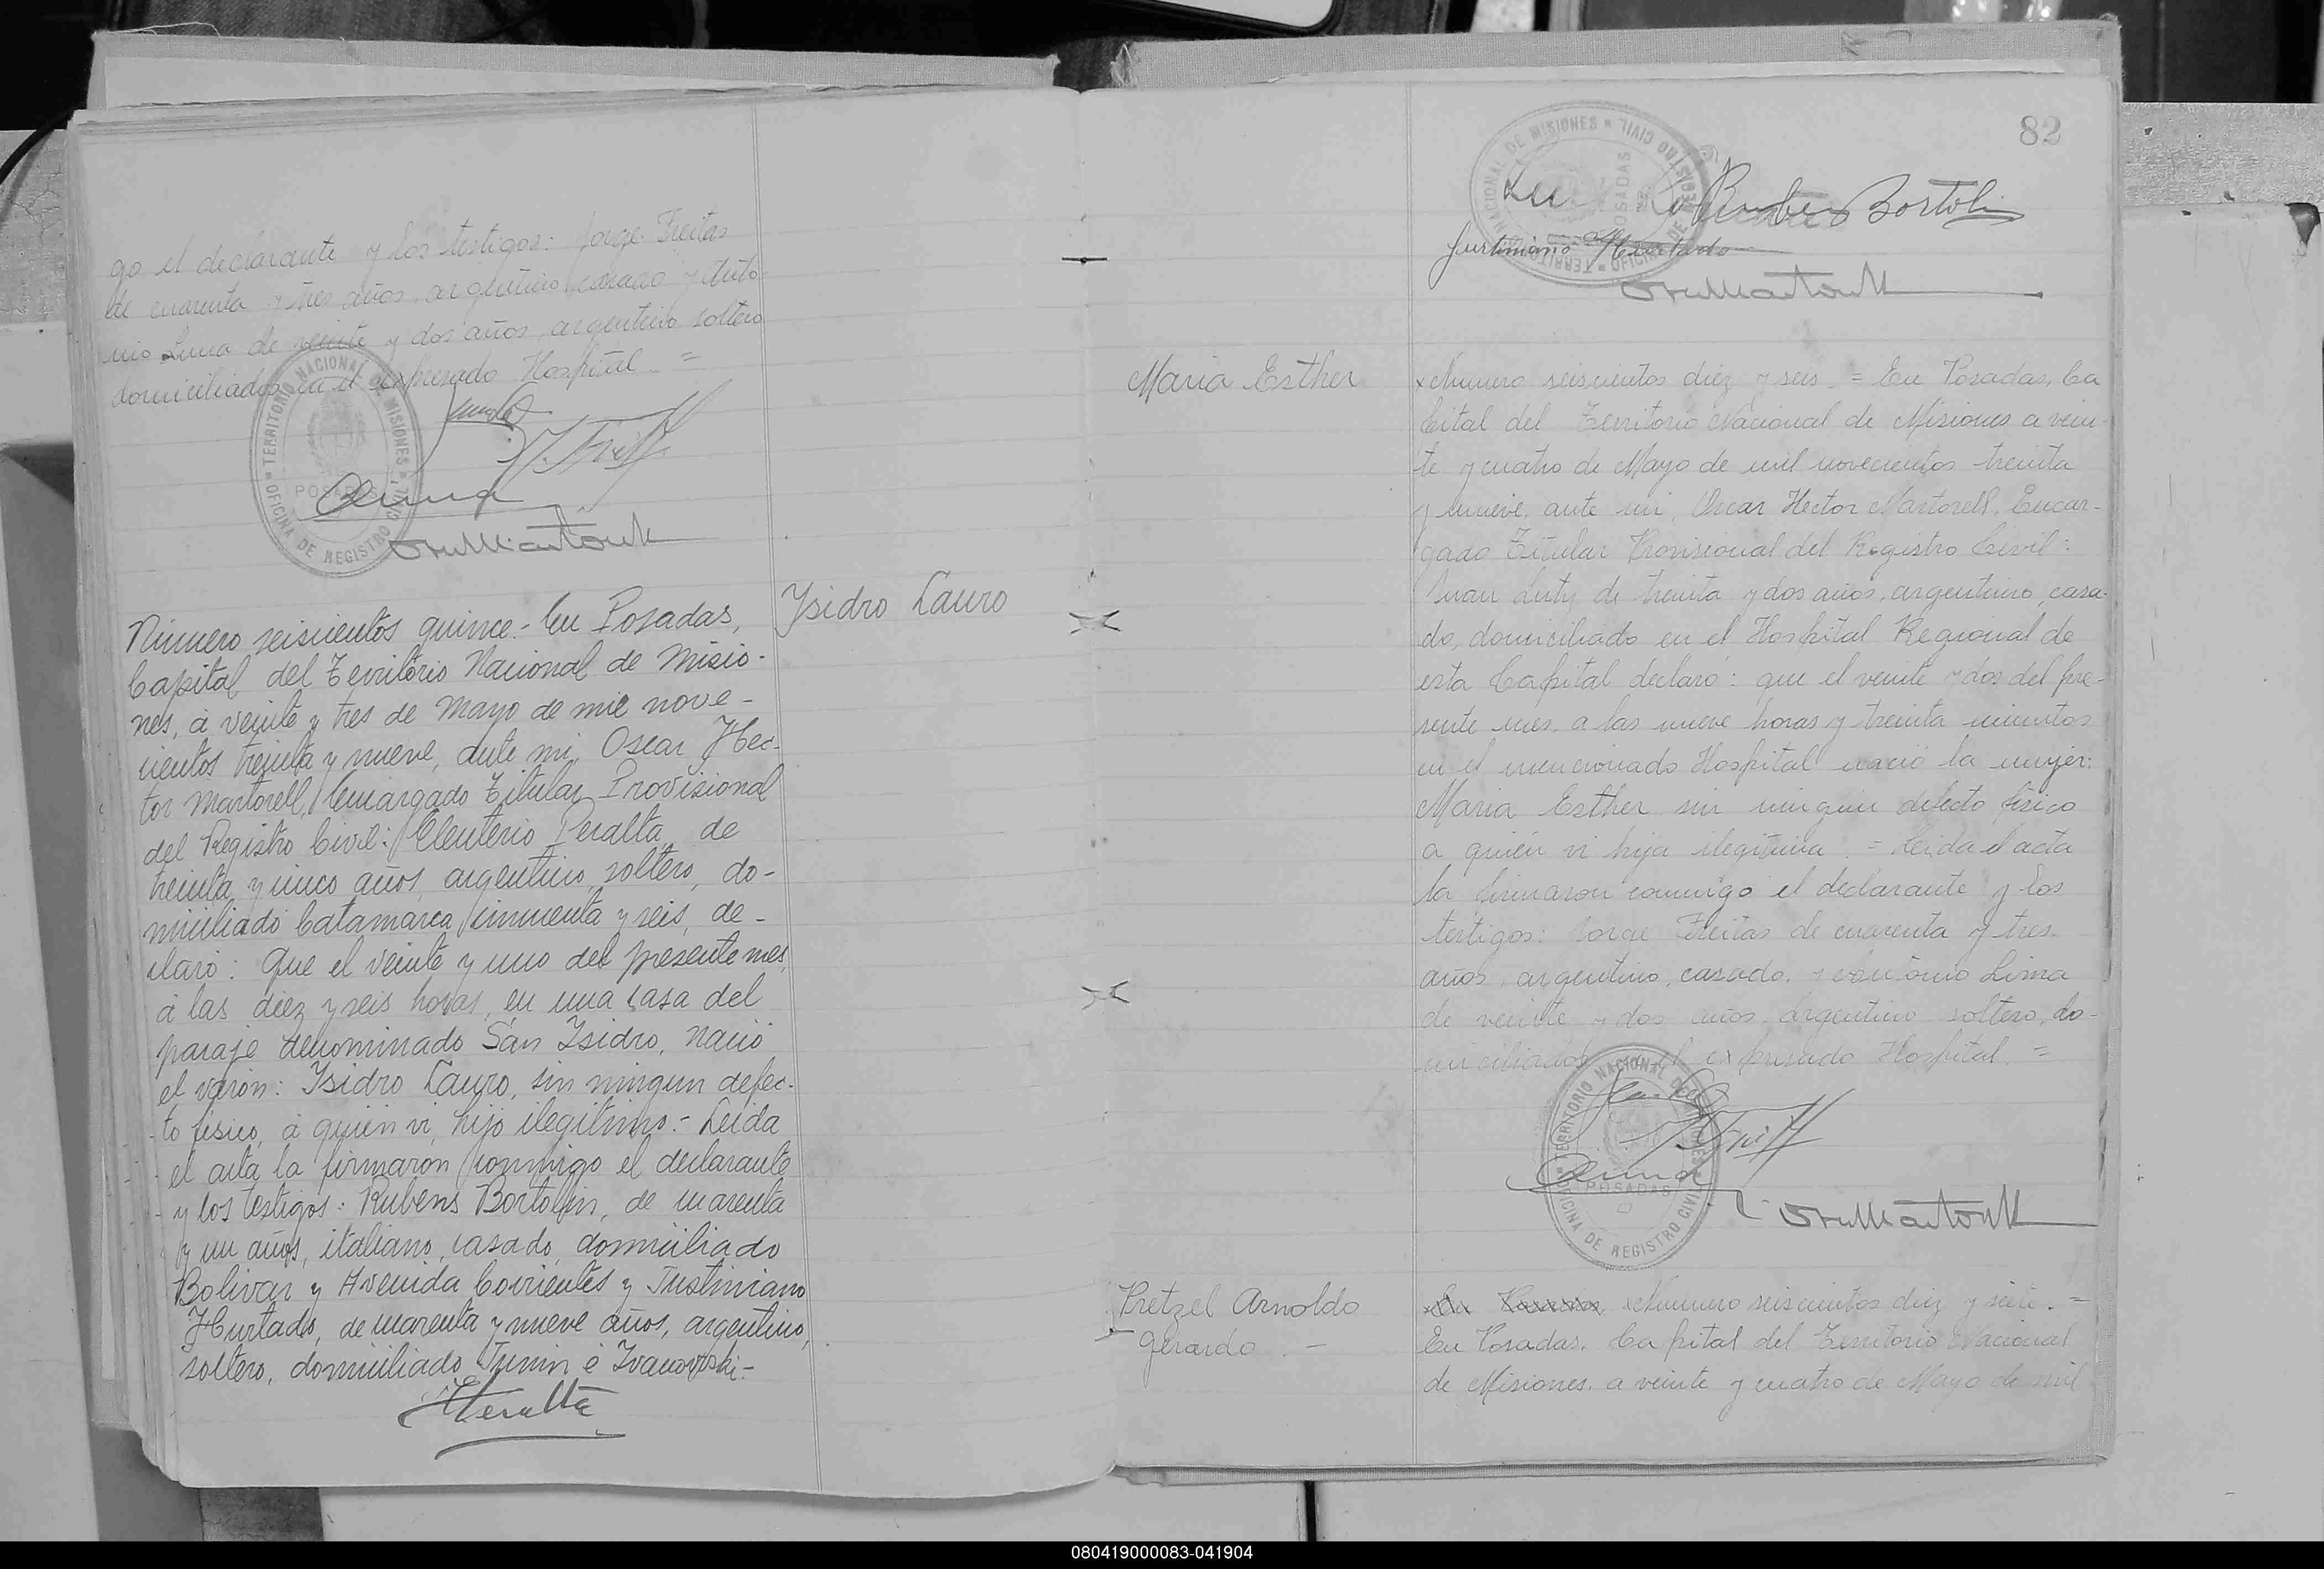 go el declarante y los testigos: Jorge Freitas
de cuarenta y tres años, argentino casado y Anto-
nio Lima de veinte y dos años argentino soltero
domiciliados en el expresado Hospital. =
TERRITORIO NACIONAL DE MISIONES
POSADAS
OFICINA DE REGISTRO CIVIL
Número seiscientos quince.- En Posadas,
Capital del Territorio Nacional de Misio-
nes, á veinte y tres de Mayo de mil nove-
cientos treinta y nueve, ante mi, Oscar Hec-
tor Martorell, Encargado Titular Provisional
del Registro Civil: Eleuterio Peralta, de
treinta y cinco años, argentino, soltero, do-
miciliado Catamarca cincuenta y seis, de-
claró: Que el veinte y uno del presente mes,
á las diez y seis horas, en una casa del
paraje denominado San Isidro, nació
el varón: Ysidro Lauro, sin ningun defec-
to físico, á quién vi, hijo ilegítimo.- Leida
el acta la firmaron conmigo el declarante
y los testigos: Rubens Bortolin, de cuarenta
y un años, italiano, casado, domiciliado
Bolivar y Avenida Corrientes y Justiniano
Hurtado, de cuarenta y nueve años, argentino,
soltero, domiciliado Junin é Ivanowski.-
Peralta
Ysidro Lauro
82
TERRITORIO NACIONAL DE MISIONES
POSADAS
OFICINA DE REGISTRO CIVIL
Rubens Bortolin
Justiniano Hurtado
Maria Esther
Numero seiscientos diez y seis. = En Posadas, Ca
pital del Territorio Nacional de Misiones a vein-
te y cuatro de Mayo de mil novecientos treinta
y nueve, ante mi, Oscar Hector Martorell, Encar-
gado Titular Provisional del Registro Civil:
Juan Luty de treinta y dos años, argentino, casa-
do, domiciliado en el Hospital Regional de
esta Capital declaró: que el veinte y dos del pre-
sente mes, a las nueve horas y treinta minutos
en el mencionado Hospital nació la mujer:
Maria Esther sin ningun defecto físico
a quién vi hija ilegitima. = Leida el acta
la firmaron conmigo el declarante y los
testigos: Jorge Freitas de cuarenta y tres
años, argentino, casado, y Antonio Lima
de veinte y dos años argentino soltero, do-
miciliados en el expresado Hospital. =
TERRITORIO NACIONAL DE MISIONES
POSADAS
OFICINA DE REGISTRO CIVIL
Kretzel Arnoldo
Gerardo. -
Numero seiscientos diez y siete. =
En Posadas, Capital del Territorio Nacional
de Misiones, a veinte y cuatro de Mayo de mil
080419000083-041904